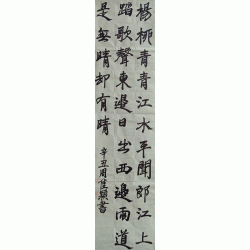 楊柳青青江水平聞郎江上
踏歌聲東邊日出西邊雨道
是無晴却有晴
辛丑周書